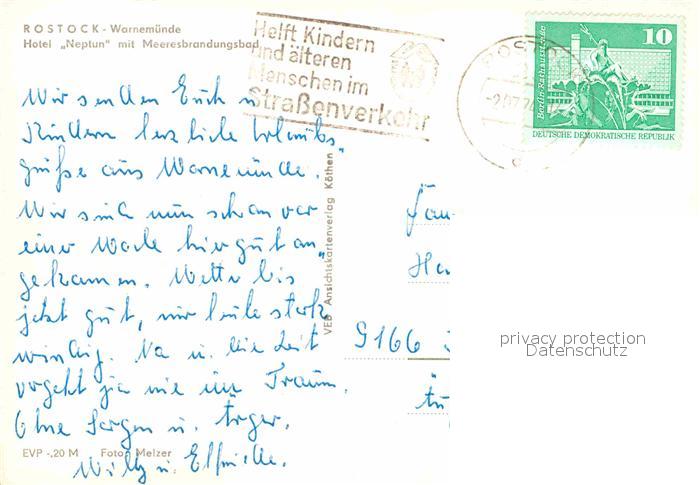 ROSTOCK - Warnemünde
Hotel „Neptun" mit Meeresbrandungsbad
Helft Kindern
und älteren
Menschen im
Straßenverkehr
ROSTO
10
Berlin-Rathausstraße
DEUTSCHE DEMOKRATISCHE REPUBLIK
Wir senden Euch u.
Kindern herzliche Urlaubs-
grüße aus Warnemünde.
Wir sind nun schon vor
einer Woche hier gut an-
gekommen. Wetter bis
jetzt gut, nur heute stark
windig. Na u. die Zeit
vergeht ja wie im Traum.
Ohne Sorgen u. Ärger.
Willy u. Elfriede.
EVP -,20 M Foto: Melzer
VEB Ansichtskartenverlag Köthen
Fam
9166
privacy protection
Datenschutz